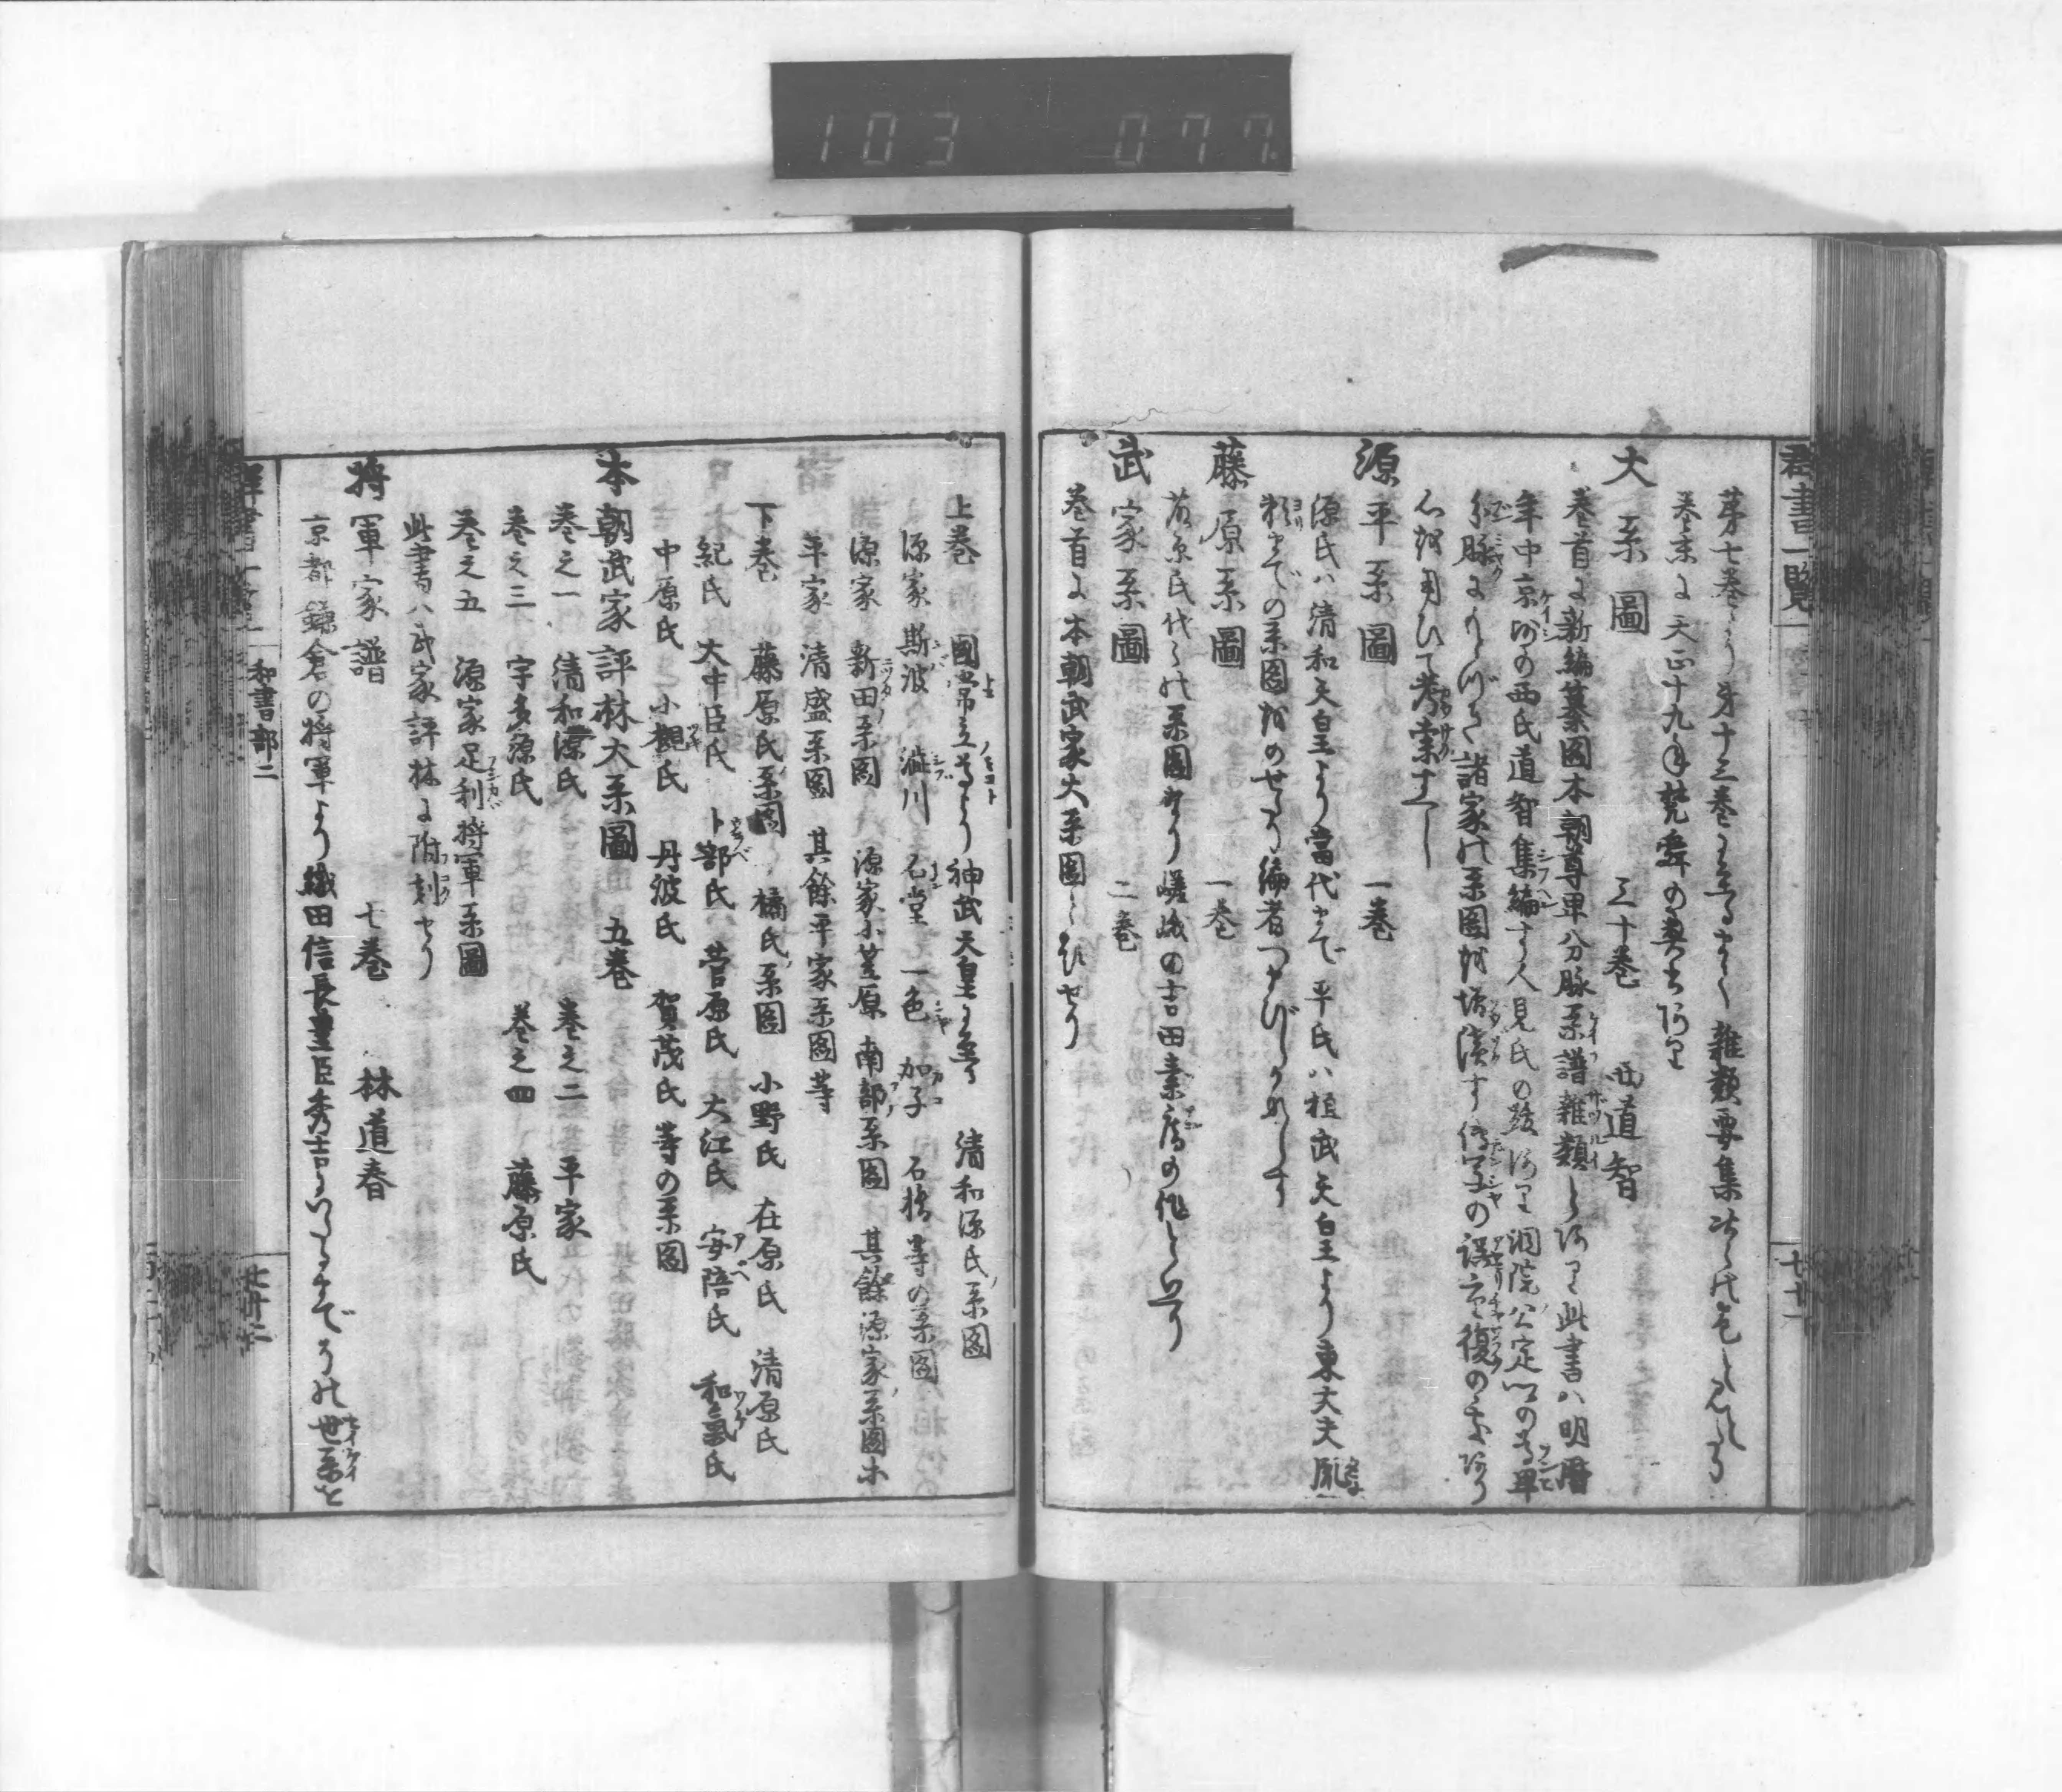 103 077
群書一覧
第七巻より第十三巻にいたるまて雑類要集
巻末に天正十九年梵舜の奥書あり
大系圖 三十巻 西道智
巻首に新編纂圖本朝尊卑分脉系譜雑類とあり此書ハ明暦
年中京師の西氏道智集編す人見氏の跋あり洞院公定公の尊卑
分脉にもとづき諸家の系圖を
心を用ひて考索すべし
源平系圖 一巻
源氏ハ清和天皇より當代まで平氏ハ桓武天皇より東大夫胤
頼までの系圖をのせたり編者つまびらかならす
藤原系圖 一巻
藤原氏代々の系圖なり嵯峨の吉田素庵の作といへり
武家系圖 二巻
巻首に本朝武家大系圖と記せり
上巻 國常立尊より神武天皇に至る 清和源氏系圖
源家 斯波 澁川 石堂 一色 加子 石橋 等の系圖
源家 新田系圖 源家小笠原 南部系圖 其餘源家系圖等
平家 清盛系圖 其餘平家系圖等
下巻 藤原氏系圖 橘氏系圖 小野氏 在原氏 清原氏
紀氏 大中臣氏 卜部氏 菅原氏 大江氏 安陪氏 和氣氏
中原氏 小槻氏 丹波氏 賀茂氏 等の系圖
本朝武家評林大系圖 五巻
巻之一 清和源氏 巻之二 平家
巻之三 宇多源氏 巻之四 藤原氏
巻之五 源家足利将軍系圖
此書ハ武家評林に附刻せり
将軍家譜 七巻 林道春
京都鎌倉の将軍より織田信長豊臣秀吉にいたるまでその世系と
群書一覧
和書部二